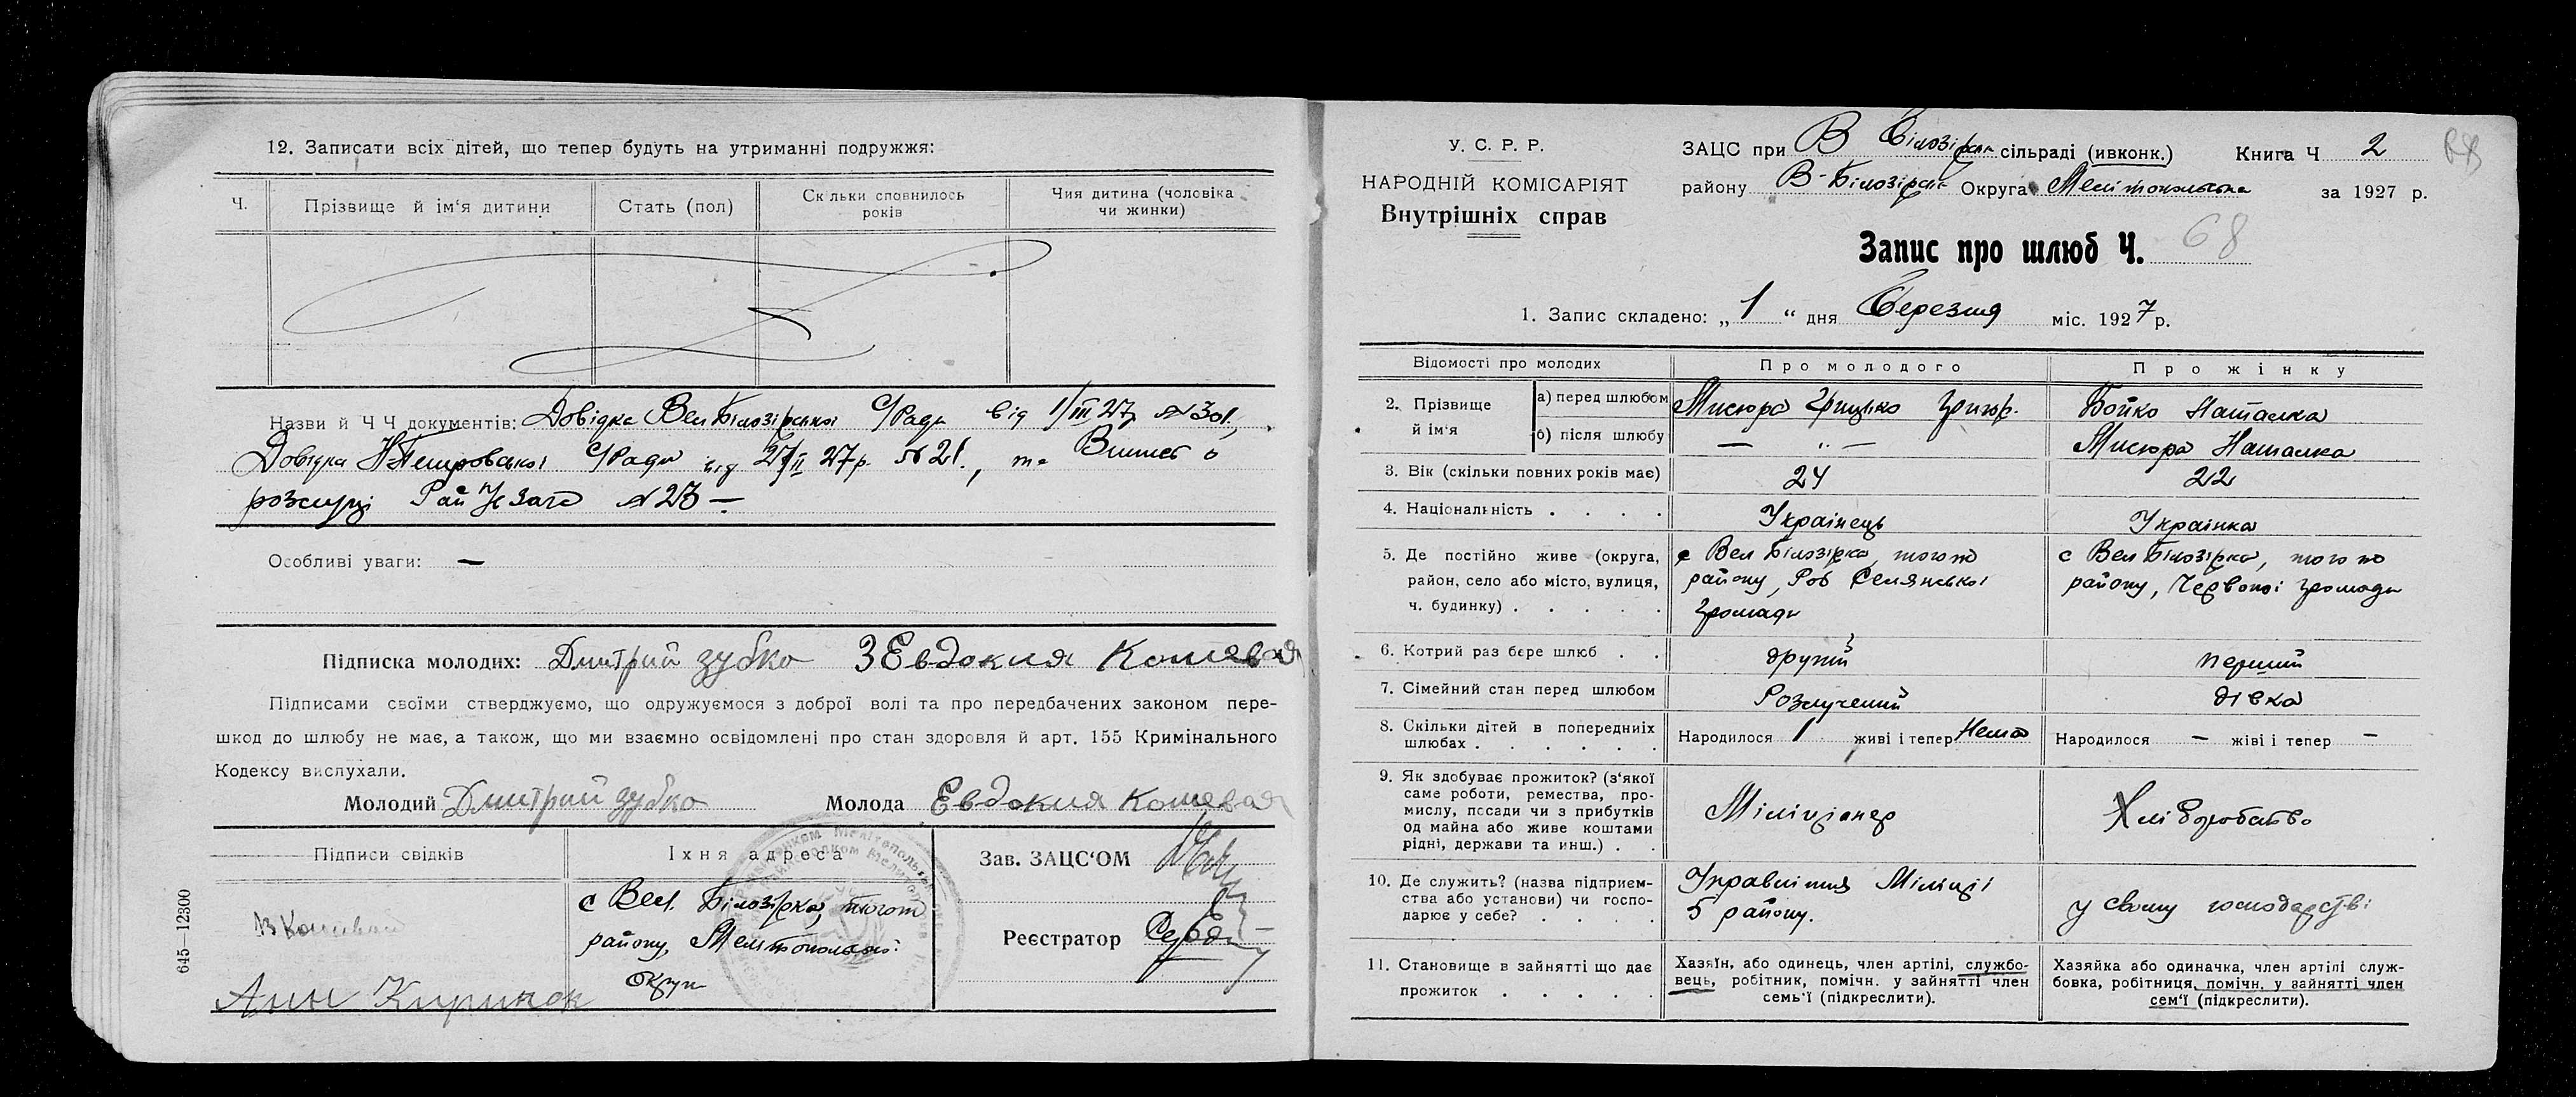 12. Записати всіх дітей, що тепер будуть на утриманні подружжя:
Ч.
Прізвище й ім'я дитини
Стать (пол)
Скільки сповнилось
років
Чия дитина (чоловіка
чи жинки)
Назви й Ч Ч документів: Довідка Вел Білозірської С/Ради від 1/III 27 № 301,
Довідка НПетровської С/Ради від 27/II 27 р. № 21, та Виписъ о
розлуці Рай № 23 —
Особливі уваги: —
Підписка молодих: Дмитрий зубко З Евдокия Кошевая
Підписами своїми стверджуємо, що одружуємося з доброї волі та про передбачених законом пере-
шкод до шлюбу не має, а також, що ми взаємно освідомлені про стан здоровля й арт. 155 Кримінального
Кодексу вислухали.
Молодий Дмитрий зубко Молода Евдокия Кошевая
Підписи свідків
Їхня адреса
с Вел. Білозірка, того ж
району, Мелітопольської
Округи
Зав. ЗАЦС'ОМ
Реєстратор
645—12300
У. С. Р. Р.
НАРОДНІЙ КОМІСАРІЯТ
Внутрішніх справ
ЗАЦС при В Білозірськ сільраді (ивконк.) Книга Ч 2
району В-Білозірськ Округа Мелітопольська за 1927 р.
Запис про шлюб Ч. 68
1. Запис складено: „ 1 “ дня Березня міс. 1927 р.
Відомості про молодих
Про молодого
Про жінку
2. Прізвище
й ім'я
а) перед шлюбом
Мисюра Грицько Григор.
Бойко Наталка
б) після шлюбу
— „ —
Мисюра Наталка
3. Вік (скільки повних років має)
24
22
4. Національність . . . .
Українець
Українка
5. Де постійно живе (округа,
район, село або місто, вулиця,
ч. будинку) . . . . .
с Вел Білозірка, того ж
району, Роб Селянської
громади
с Вел Білозірка, того ж
району, Червоної громади
6. Котрий раз бере шлюб . .
другий
перший
7. Сімейний стан перед шлюбом
Розлучений
дівка
8. Скільки дітей в попередніх
шлюбах . . . . . .
Народилося 1 живі і тепер Нема
Народилося — жіві і тепер —
9. Як здобуває прожиток? (з'якої
саме роботи, ремества, про-
мислу, посади чи з прибутків
од майна або живе коштами
рідні, держави та инш.) . .
Міліціонер
Хліборобство
10. Де служить? (назва підприєм-
ства або установи) чи госпо-
дарює у себе? . . . .
Управління Міліції
5 району.
у своєму господарстві
11. Становище в зайнятті що дає
прожиток . . . . .
Хазяїн, або одинець, член артілі, службо-
вець, робітник, помічн. у зайнятті член
семь'ї (підкреслити).
Хазяйка або одиначка, член артілі служ-
бовка, робітниця, помічн. у зайнятті член
сем'ї (підкреслити).